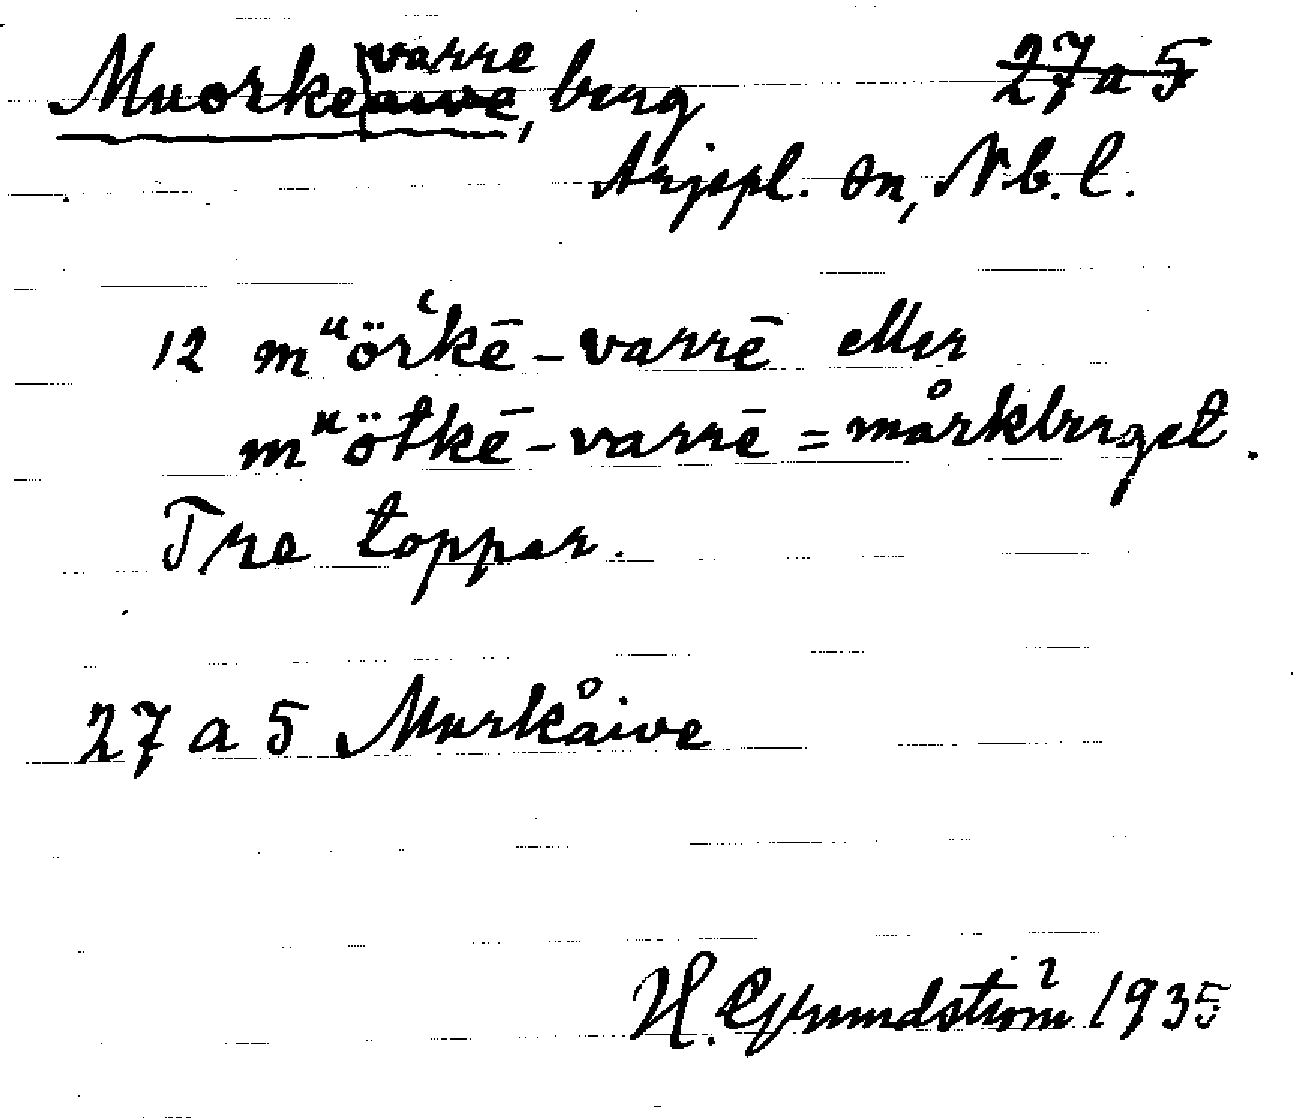 Muorke|varre aive, berg 27a5
Arjepl. sn, Nb. l.
12 mᵘörʿkē-varrē eller
mᵘötkē-varrē = mårkberget.
Tre toppar.
27 a 5 Murkåive
H. Grundström 1935